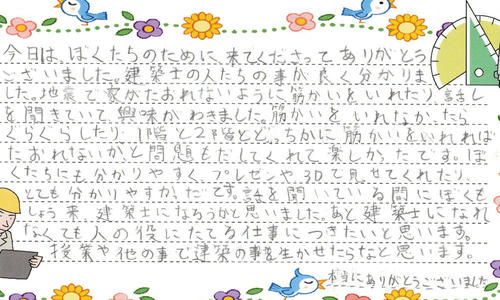 今日は、ぼくたちのために、来てくださってありがとう
ございました。建築士の人たちの事が良く分かりま
した。地震で家がたおれないように筋かいをいれたり、話し
を聞きいていて興味がわきました。筋かいをいれなかったら
ぐらぐらしたり、1階と2階とどっちかに筋かいをいれれば
たおれないかと問題もだしてくれて楽しかったです。ぼ
くたちにも分かりやすく、プレゼンや3Dで見せてくれたり、
とても分かりやすかったです。話を聞いている間にぼくも
しょう来、建築士になろうかと思いました。あと建築士になれ
なくても人の役にたてる仕事につきたいと思います。
授業や他の事で建築の事を生かせたらなと思います。
本当にありがとうございました